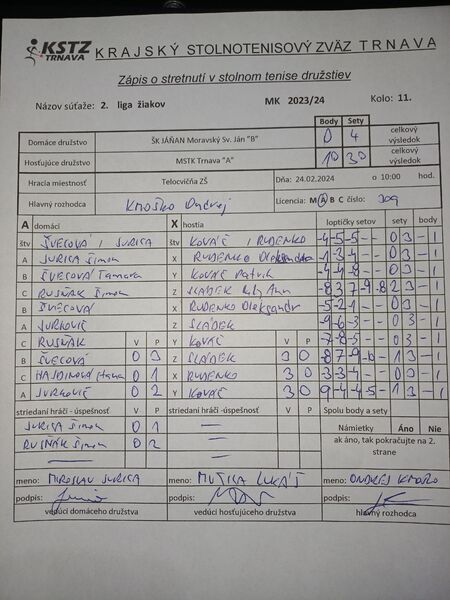 KSTZ TRNAVA KRAJSKÝ STOLNOTENISOVÝ ZVÄZ TRNAVA
Zápis o stretnutí v stolnom tenise družstiev
Názov súťaže: 2. liga žiakov MK 2023/24 Kolo: 11.
Body Sety
Domáce družstvo ŠK JÁŇAN Moravský Sv. Ján "B" 0 4 celkový výsledok
Hosťujúce družstvo MSTK Trnava "A" 10 30 celkový výsledok
Hracia miestnosť Telocvičňa ZŠ Dňa: 24.02.2024 o 10:00 hod.
Hlavný rozhodca Kmoško Ondrej Licencia: M A B C číslo: 309
A domáci X hostia loptičky setov sety body
štv ŠVECOVÁ / JURICA štv KOVÁČ / RUDENKO -4 -5 -5 - - 0 3 - 1
A JURICA Šimon X RUDENKO Oleksandr -1 -3 -4 - - 0 3 - 1
B ŠVECOVÁ Tamara Y KOVÁČ Patrik -4 -4 -8 - - 0 3 - 1
C RUSŇÁK Šimon Z SLÁDEK -8 3 7 -9 -8 2 3 - 1
B ŠVECOVÁ X RUDENKO Oleksandr -5 -2 -1 - - 0 3 - 1
A JURKOVIČ Z SLÁDEK -9 -6 -3 - - 0 3 - 1
C RUSŇÁK V P Y KOVÁČ V P -7 -8 -5 - - 0 3 - 1
B ŠVECOVÁ 0 3 Z SLÁDEK 3 0 1 3 - 1
C HAJDINOVÁ 0 1 X RUDENKO 3 0 -3 -3 -4 - - 0 3 - 1
A JURKOVIČ 0 2 Y KOVÁČ 3 0 9 -4 -4 -5 - 1 3 - 1
striedaní hráči - úspešnosť V P striedaní hráči - úspešnosť V P Spolu body a sety
JURICA Šimon 0 1 — Námietky Áno Nie
RUSŇÁK Šimon 0 2 — ak áno, tak pokračujte na 2. strane
— —
meno: MIROSLAV JURICA meno: MUTICA LUKÁŠ meno: ONDREJ KMOŠKO
podpis: podpis: podpis:
vedúci domáceho družstva vedúci hosťujúceho družstva hlavný rozhodca